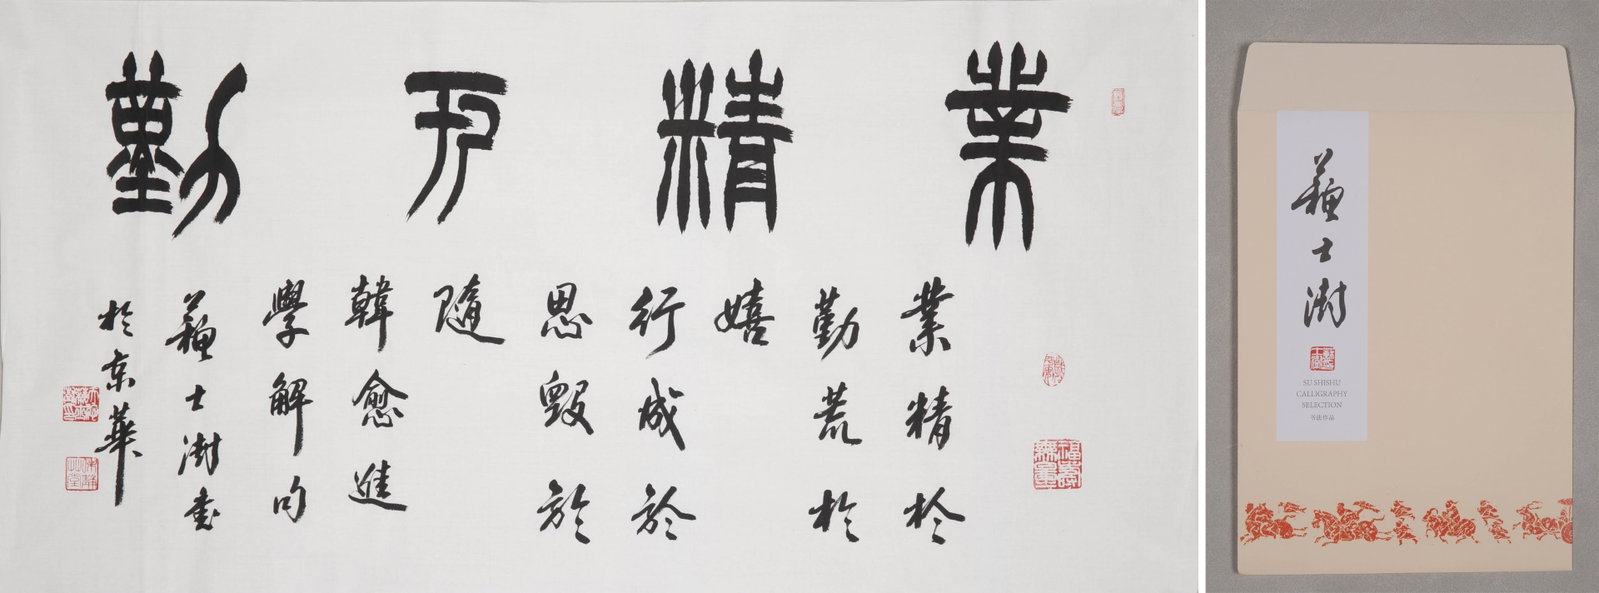 業精于勤
業精於
勤荒於
嬉
行成於
思毀於
隨
韓愈進
學解句
蘇士澍書
於京華
福壽無量
蘇士澍
SU SHISHU
CALLIGRAPHY
SELECTION
书法作品